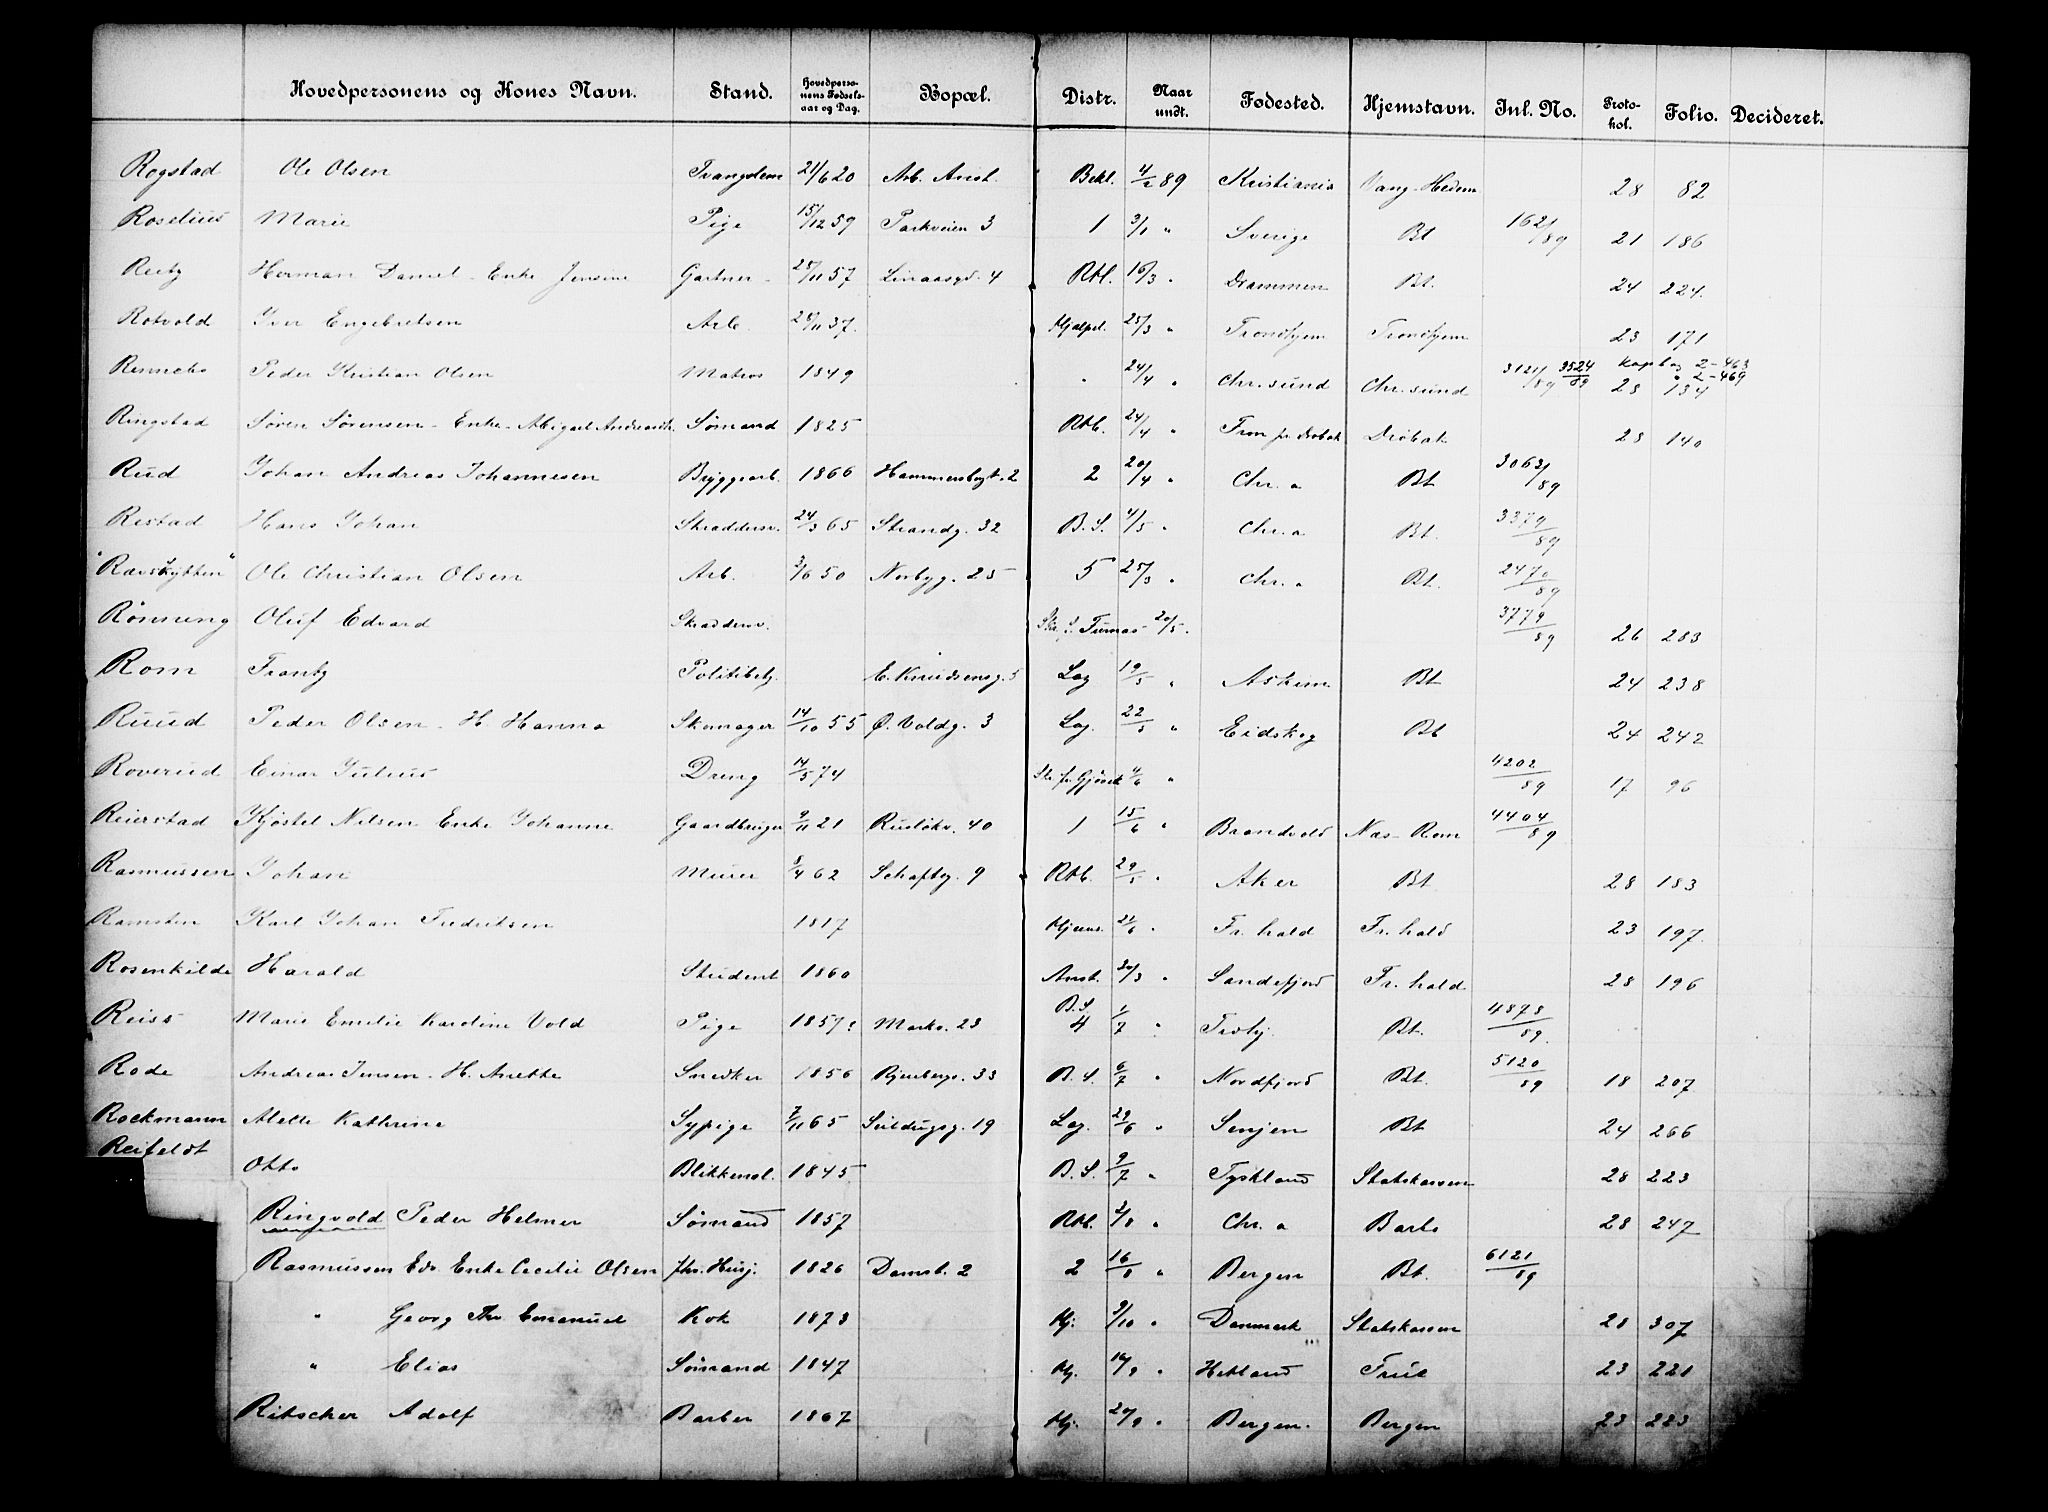 Hovedpersonens og Kones Navn. Stand. Hovedperso-nens Fødsels-aar og Dag. Bopæl. Distr. Naar undt. Fødested. Hjemstavn. Inl. No. Proto-kol. Folio. Decideret.
Rogstad Ole Olsen Tvangslem 21/6 20 Arb. Anst. Bekl. 4/2 89 Kristiania Vang-Hedem 28 82
Roselius Marie Pige 15/12 59 Parkveien 3 1 3/1 " Sverige Bt 1621/89 21 186
Reitz Herman Daniel - Enke Jensine Gartner 25/11 57 Linaasgd. 4 Rbl. 16/3 " Drammen Bt. 24 224.
Rotvold Iver Engebretsen Arb. 11 37. Hjælpel. 25/3 " Trondhjem Trondhjem 23 171
Rennebo Peder Kristian Olsen Matros 1849 " 24/4 " Chr.sund Chr.sund 3121/89 3524/89 28 134 Kopibog 2-463 " 2-469
Ringstad Søren Sørensen - Enke - Abigael Sømand 1825 Rbl. 24/4 " Drøbak 28 140
Rud Johan Andreas Johannesen Bryggearb. 1866 Hammersbgt. 2 2 20/4 " Chr.a Bt 3063/89
Ristad Hans Johan Skrædders. 24/3 65 Strandg. 32 B.S. 4/5 " Chr.a Bt. 3379/89
"Rævskytten" Ole Christian Olsen Arb. 3/6 50 Norbyg. 25 5 25/3 " Chr.a Bt. 2470/89
Rønning Oluf Edvard Skrædders. 20/5 " 3779/89 26 283
Rom Frantz Politibetj. E. Knudsensg. 5 Lag 19/5 " Askim Bt 24 238
Ruud Peder Olsen - H. Hanna Skomager 14/10 55 Ø. Voldg. 3 Lag. 22/5 " Eidskog Bt 24 242
Roverud Einar Julius Dreng 14/5 74 Str. fr. Gjøvik 4/6 " 4202/89 17 96
Reierstad Kjøstel Nilsen Enke Johanne Gaardbruger 9/11 21 Ruseløkv. 40 1 15/6 " Brandvold Næs - Rom 4404/89
Rasmussen Johan Murer 3/4 62 Schaftg. 9 Rbl. 29/5 " Aker Bt. 28 183
Ramsten Karl Johan Fredriksen 1817 Hjems. 21/6 " Fr.hald Fr.hald 23 197.
Rosenkilde Harald Student 1860 Anst. 20/3 " Sandefjord Fr.hald 28 196
Reiss Marie Emilie Karoline Vold Pige 1857? Markv. 23 B.S. 4 1/7 " Trohj. Bt. 4878/89.
Rode Andreas Jensen - H. Anette Snedker 1856 Rjenbergv. 33 B.S. 6/7 " Nordfjord Bt. 5120/89 18 207
Rockmann Alette Kathrine Sypige 7/11 65 Seildugsg. 19 Lag. 29/6 " Senjen Bt 24 266
Reifeldt Otto Blikkensl. 1845 B.S. 9/7 " Tyskland Statskassen 28 223
Ringvold Peder Helmer Sømand 1857 Rbl. 2/8 " Chr.a Barbo 28 247
Rasmussen Edv. Enke Cecilie Olsen fhv. Husj. 1826 Damst. 2 2 16/8 " Bergen Bt. 6121/89
" Georg Thv. Emanuel Kok 1873 Hj. 9/10 " Danmark Statskassen 28 307
" Elias Sømand 1847 Hj. 16/9 " Hetland 23 221
Ritscher Adolf Barber 1867 Hj. 20/9 " Bergen. Bergen 23 223